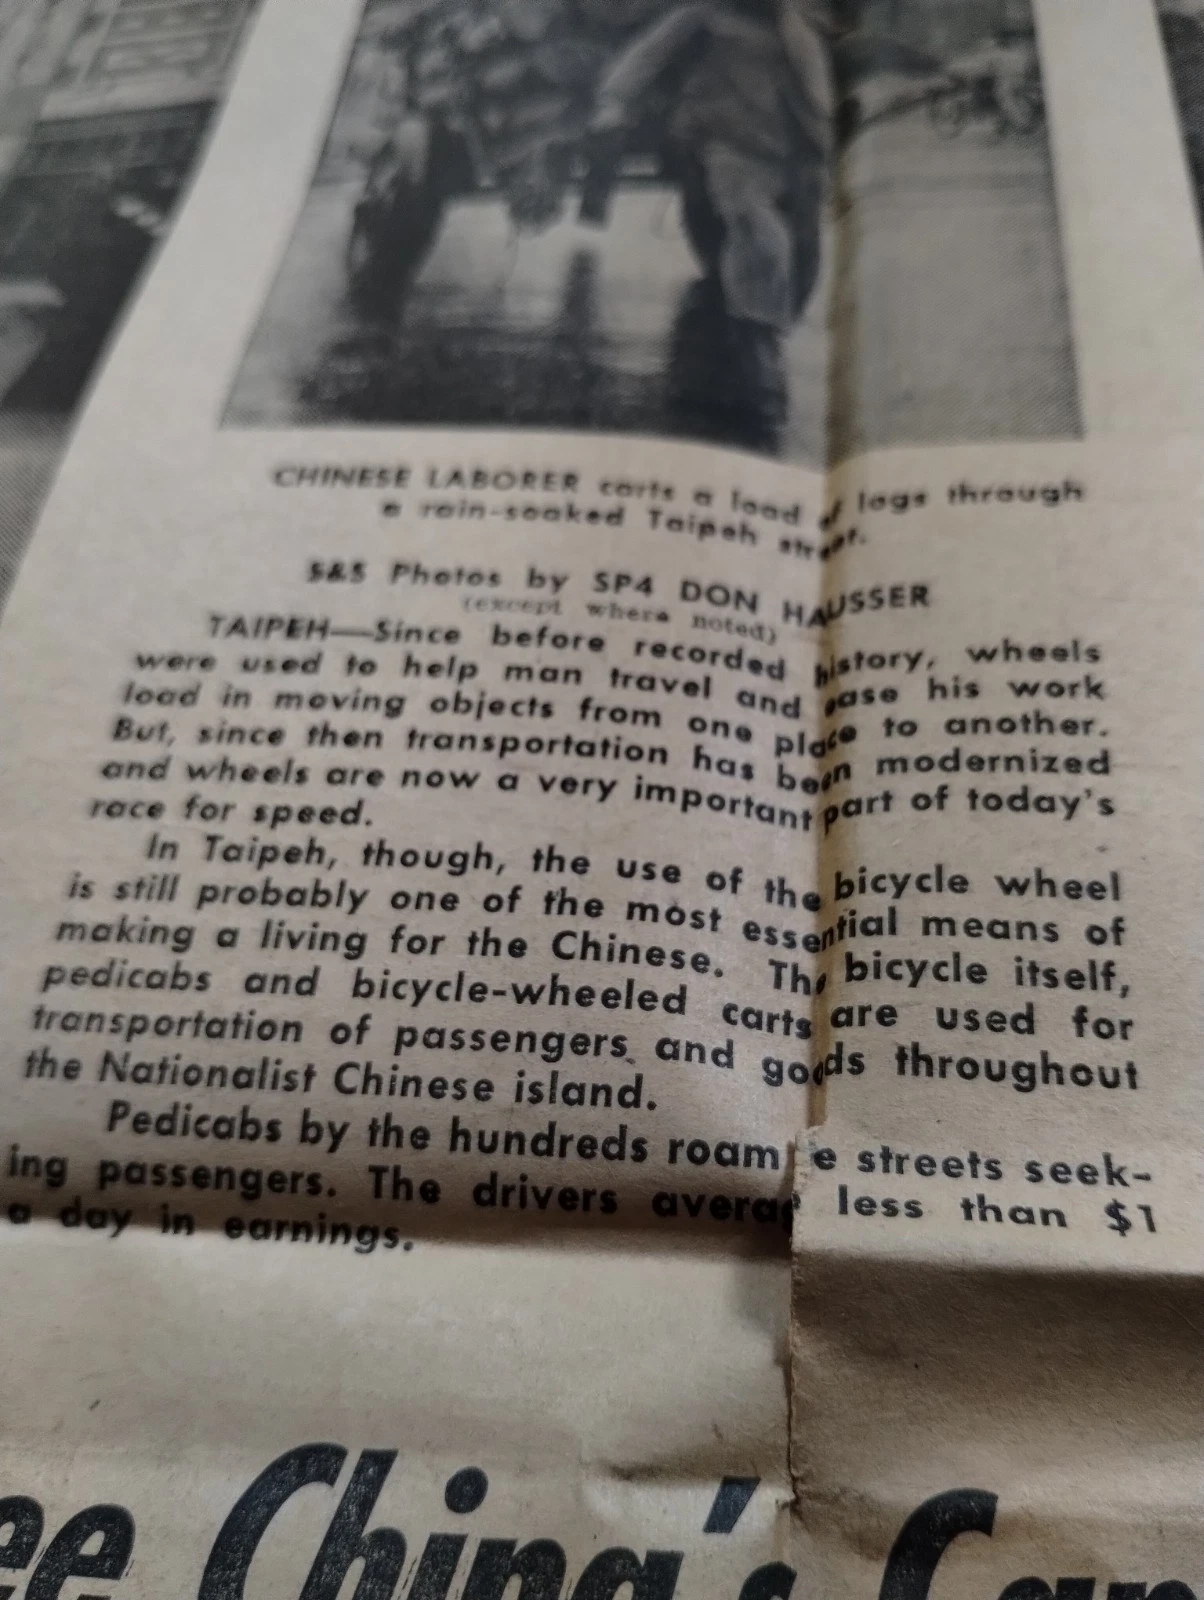 CHINESE LABORER carts a load of logs through
a rain-soaked Taipeh street.
S&S Photos by SP4 DON HAUSSER
(except where noted)
TAIPEH—Since before recorded history, wheels
were used to help man travel and ease his work
load in moving objects from one place to another.
But, since then transportation has been modernized
and wheels are now a very important part of today's
race for speed.
In Taipeh, though, the use of the bicycle wheel
is still probably one of the most essential means of
making a living for the Chinese. The bicycle itself,
pedicabs and bicycle-wheeled carts are used for
transportation of passengers and goods throughout
the Nationalist Chinese island.
Pedicabs by the hundreds roam e streets seek-
ing passengers. The drivers average less than $1
a day in earnings.
ee China's Cap